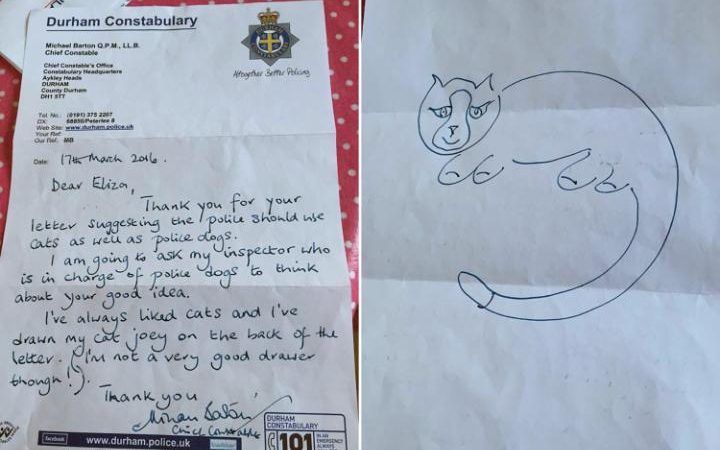 Durham Constabulary
Michael Barton Q.P.M., LL.B.
Chief Constable
Chief Constable's Office
Constabulary Headquarters
Aykley Heads
DURHAM
County Durham
DH1 5TT
Altogether Better Policing
Tel. No.: (0191) 375 2207
DX: 68950/Peterlee 8
Web Site: www.durham.police.uk
Your Ref:
Our Ref: MB
Date: 17th March 2016.
Dear Eliza,
Thank you for your
letter suggesting the police should use
cats as well as police dogs.
I am going to ask my inspector who
is in charge of police dogs to think
about your good idea.
I've always liked cats and I've
drawn my cat joey on the back of the
letter. (I'm not a very good drawer
though!).
Thank you
Chief Constable
facebook www.durham.police.uk
DURHAM
CONSTABULARY
101
IN AN
EMERGENCY
ALWAYS